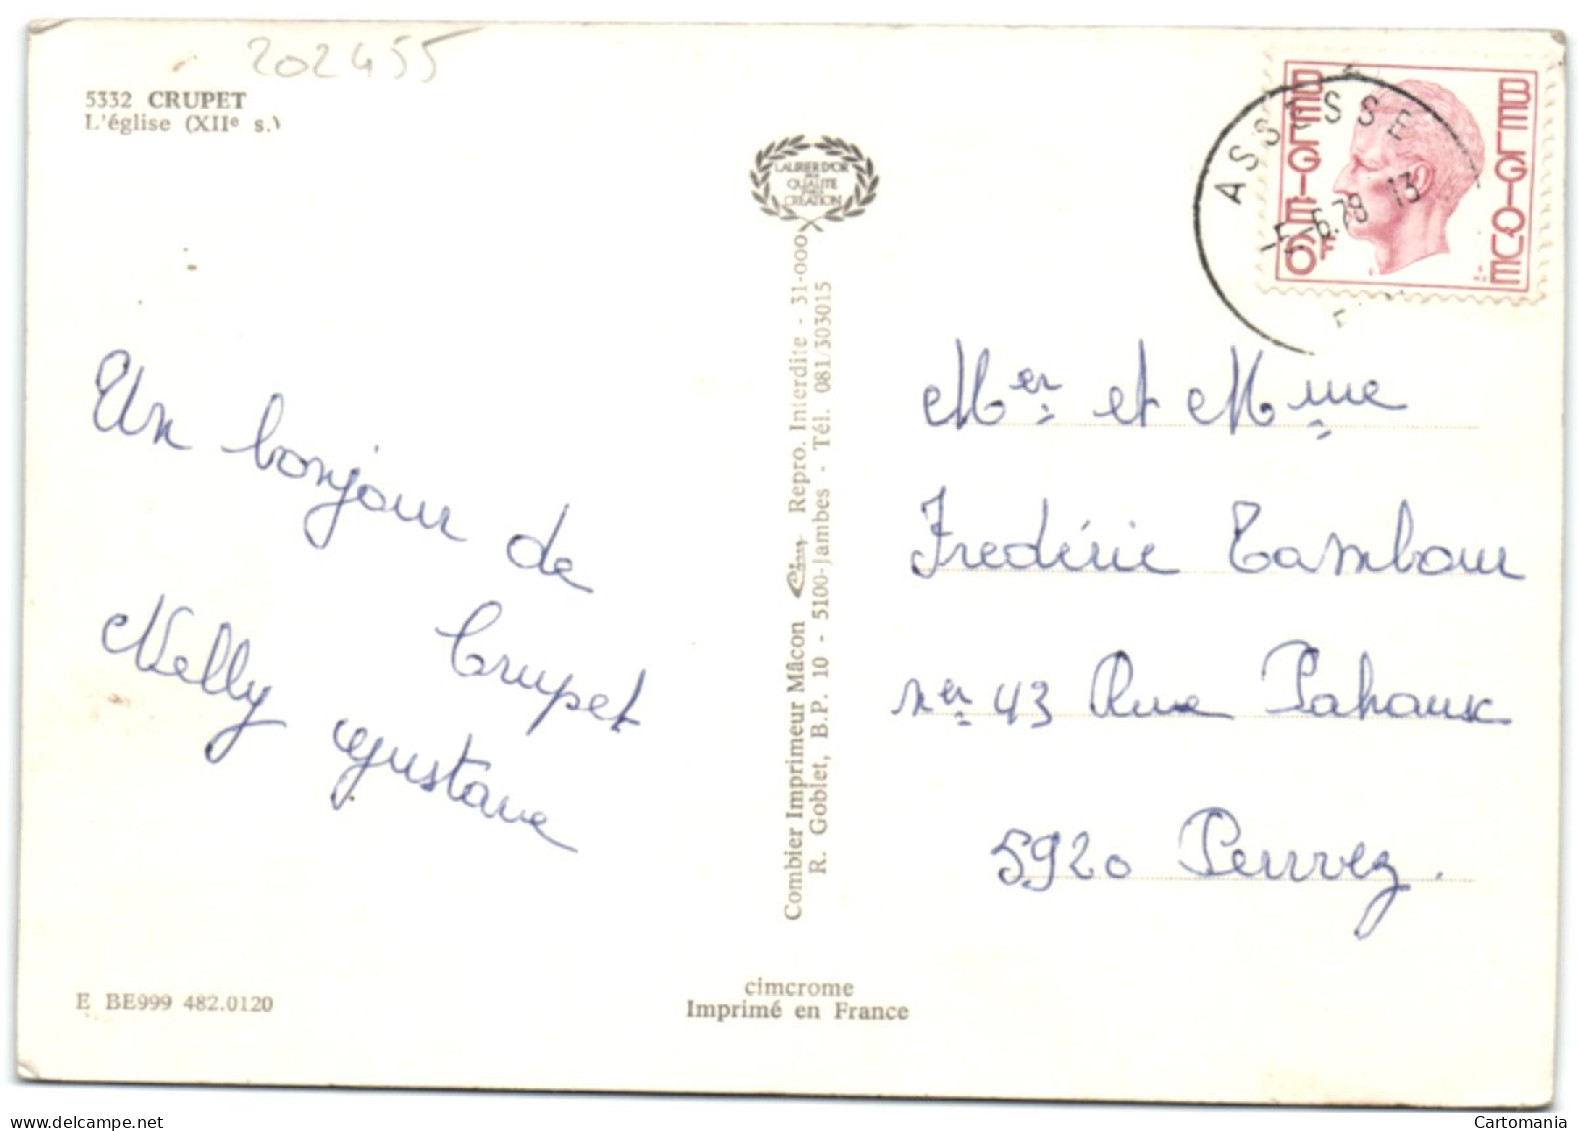 202455
5332 CRUPET
L'église (XIIe s.)
LAURIER D'OR
QUALITE
CREATION
BELGIE
BELGIQUE
6F
ASSESSE
-5-6.78 13
Un bonjour de
Crupet
Nelly Gustave
Combier Imprimeur Mâcon Cim Repro. Interdite - 31-000
R. Goblet, B.P. 10 - 5100-Jambes - Tél. 081/303015
Mer et Mme
Fredéric Tambour
ner 43 Rue Pahaux
5920 Perwez.
E BE999 482.0120
cimcrome
Imprimé en France
Cartomania